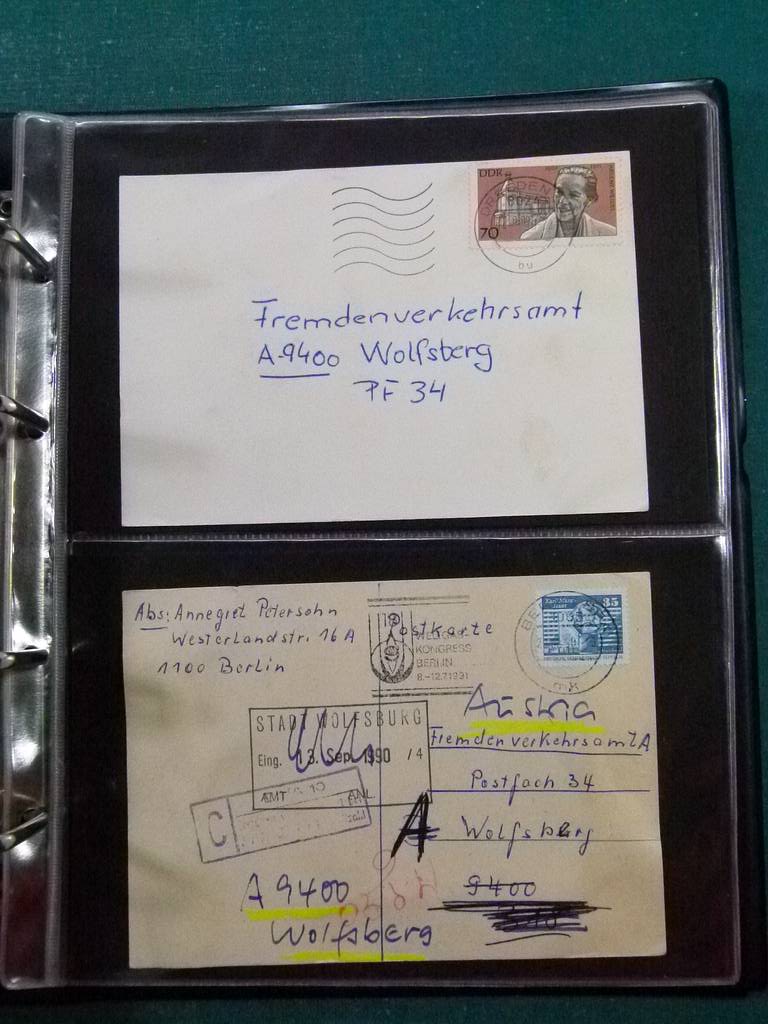 DDR
70
DRESDEN
bu
Fremdenverkehrsamt
A-9400 Wolfsberg
PF 34
Abs: Annegret Petersohn
Westerlandstr. 16 A
1100 Berlin
Postkarte
KONGRESS
BERLIN
8.-12.7.1991
35
mk
Austria
STADT WOLFSBURG
Eing. 13. Sep. 1990 / 4
AMT ANL.
C
Fremdenverkehrsamt
Postfach 34
A
Wolfsberg
9400
A 9400
Wolfsberg